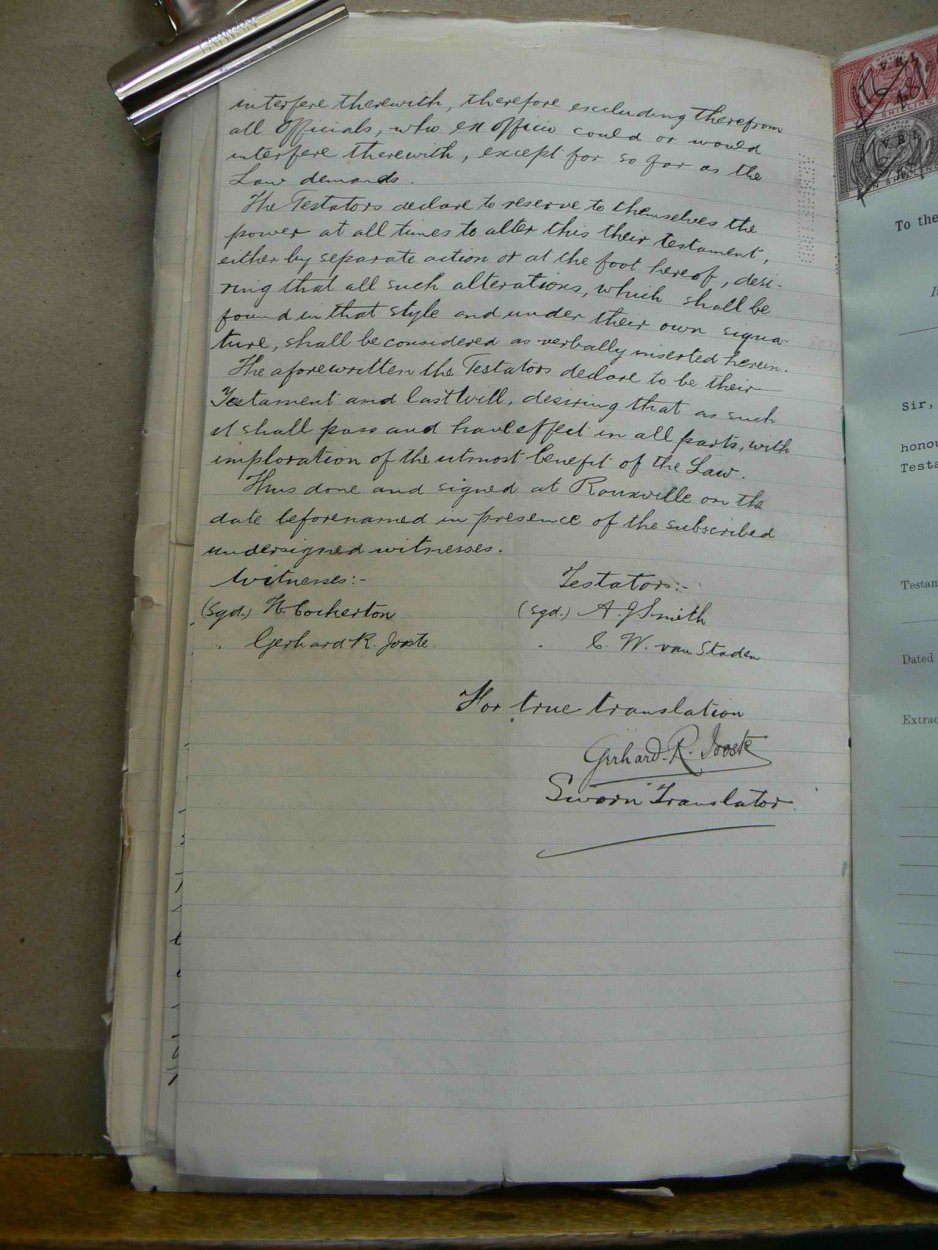 TAIWAN
interfere therewith, therefore excluding therefrom
all Officials, who ex officio could or would
interfere therewith, except for so far as the
Law demands.
The Testators declare to reserve to themselves the
power at all times to alter this their testament,
either by separate action or at the foot hereof, desi-
ring that all such alterations, which shall be
found in that style and under their own signa-
ture, shall be considered as verbally inserted herein.
The aforewritten the Testators declare to be their
Testament and last Will, desiring that as such
it shall pass and have effect in all parts, with
imploration of the utmost benefit of the Law.
Thus done and signed at Rouxville on the
date beforenamed in presence of the subscribed
undersigned witnesses.
Witnesses:-
(Sgd.) H. Cockerton
" Gerhard R. Jooste
Testator:-
(Sgd.) A J Smith
" C. W. van Staden
For true translation
Gerhard. R. Jooste
Sworn Translator.
V R I
SHILLINGS
V R I
SHILLING
To the
Sir,
honou
Testa
Testam
Dated
Extrac